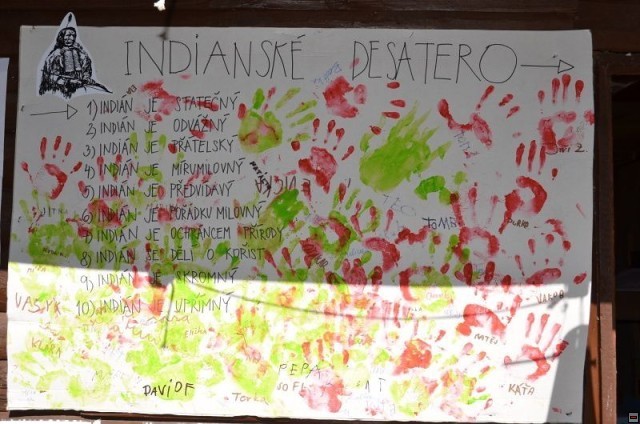 INDIANSKÉ DESATERO
1) INDIÁN JE STATEČNÝ
2) INDIÁN JE ODVÁŽNÝ
3) INDIÁN JE PŘÁTELSKÝ
4) INDIÁN JE MÍRUMILOVNÝ
5) INDIÁN JE PŘEDVÍDAVÝ
6) INDIÁN JE POŘÁDKU MILOVNÝ
7) INDIÁN JE OCHRÁNCEM PŘÍRODY
8) INDIÁN SE DĚLÍ O KOŘIST
9) INDIÁN JE SKROMNÝ
10) INDIÁN JE UPŘÍMNÝ
JIŘÍ Ž
TEO
TOMÁŠ
VAŠÍK
VAKUR
MATĚJ
KLÁRA
PEPA
SOFI
DAVID F
KÁŤA